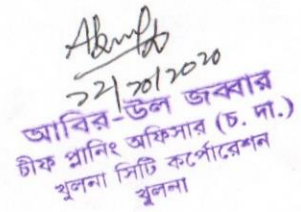 ২২/১০/২০২০
আবির-উল জব্বার
চীফ প্লানিং অফিসার (চ. দা.)
খুলনা সিটি কর্পোরেশন
খুলনা